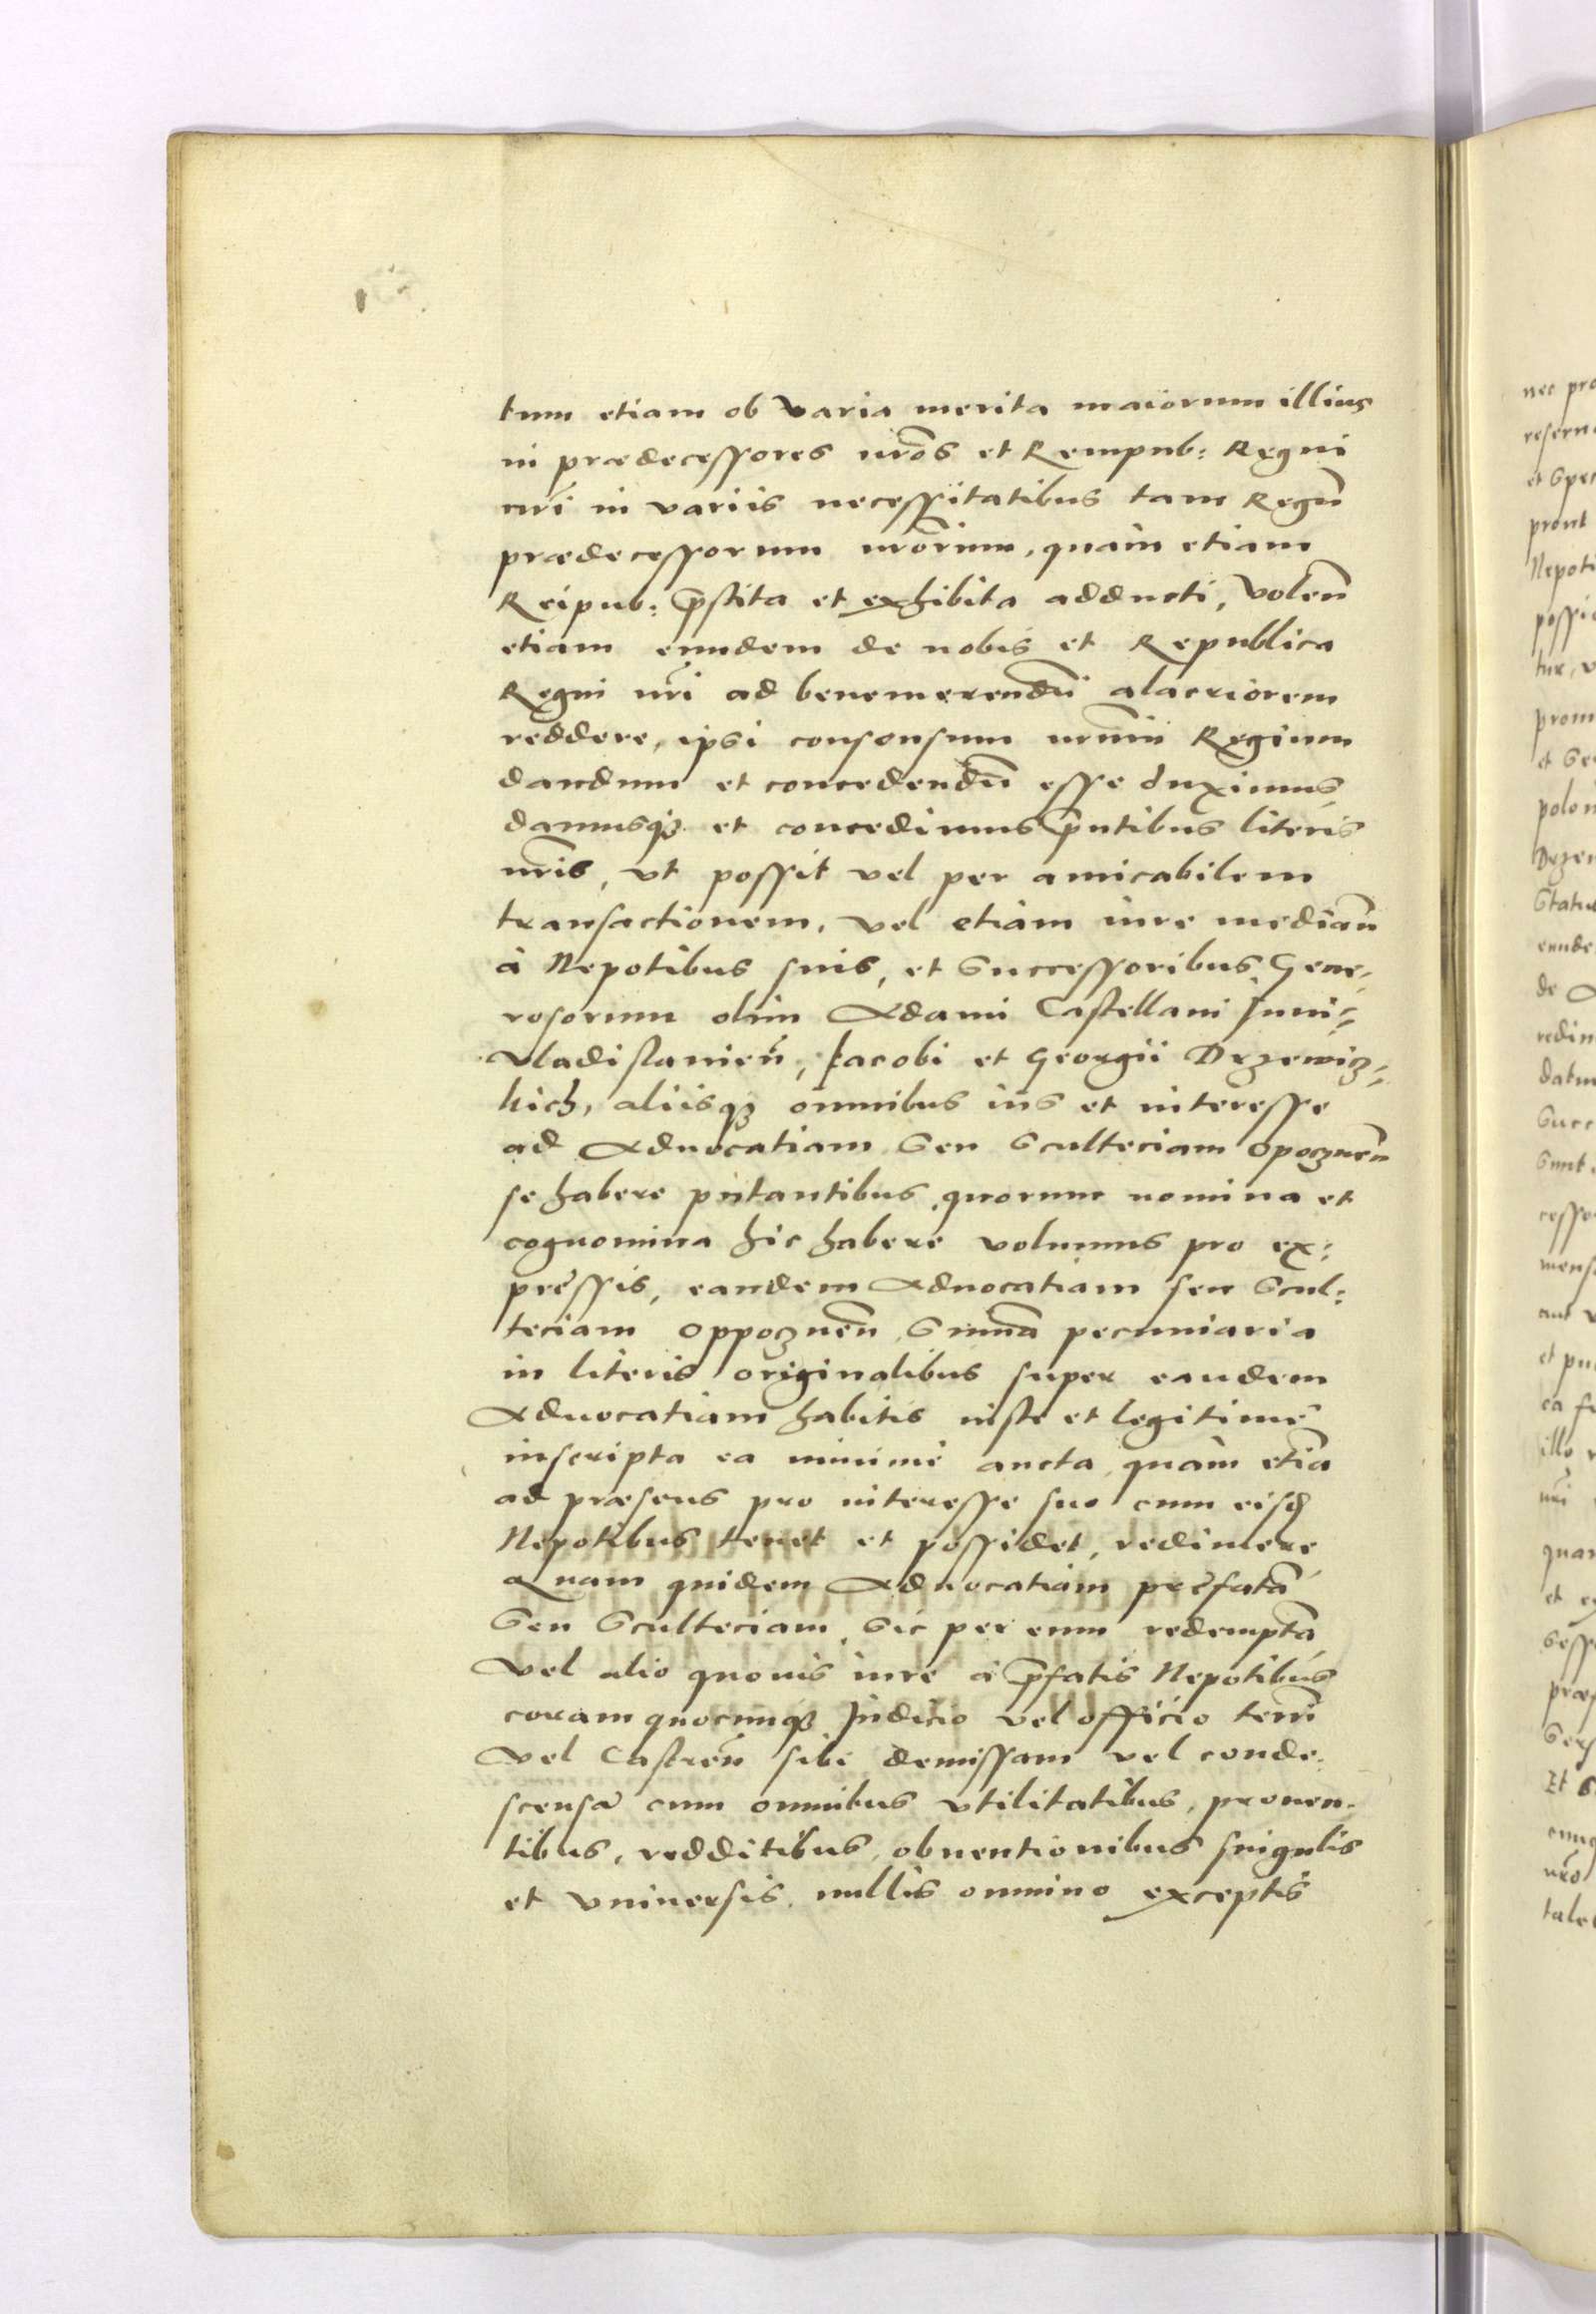 tum etiam ob varia merita maiorum illius
in prædecessores nr̃os et Rempub: Regni
nr̃i in variis necessitatibus tam Regũ
prædecessorum nr̃orum, quàm etiam
Reipub: p̃stita et exhibita adducti, volen̄
etiam eundem de nobis et Republica
Regni nr̃i ad benemerendũ alacriorem
reddere, ipsi consensum nr̃um Regium
dandum et concedendũ esse duximus,
damusq₃ et concedimus p̃ntibus literis
nr̃is, vt possit vel per amicabilem
transactionem, vel etiam iure median̄
à Nepotibus suis, et Successoribus Gene-
rosorum olim Adami Castellani Juni=
vladislauien̄, Jacobi et Georgii Drzewicz=
kich, aliisq₃ omnibus ius et interesse
ad Aduocatiam Seu Sculteciam Opocznen̄
se habere putantibus, quorum nomina et
cognomina hic habere volumus pro ex:
pressis, eandem Aduocatiam seu Scul:
teciam Oppocznen̄ Summa pecuniaria
in literis originalibus super eandem
Aduocatiam habitis iuste et legitimè
inscripta ea minimè aucta, quàm etiã
ad præsens pro interesse suo cum eisd̃
Nepotibus tenet et possidet, redimere,
Quam quidem Aduocatiam præfatã
Seu Sculteciam, Sic per eum redemptã
vel alio quouis iure à p̃fatis Nepotibus
coram quocunq₃ Judicio vel officio terr̃i
vel Castren̄ sibi demissam vel conde-
scensã cum omnibus vtilitatibus, prouen-
tibus, redditibus, obuentionibus singulis
et vniuersis, nullis omnino exceptis